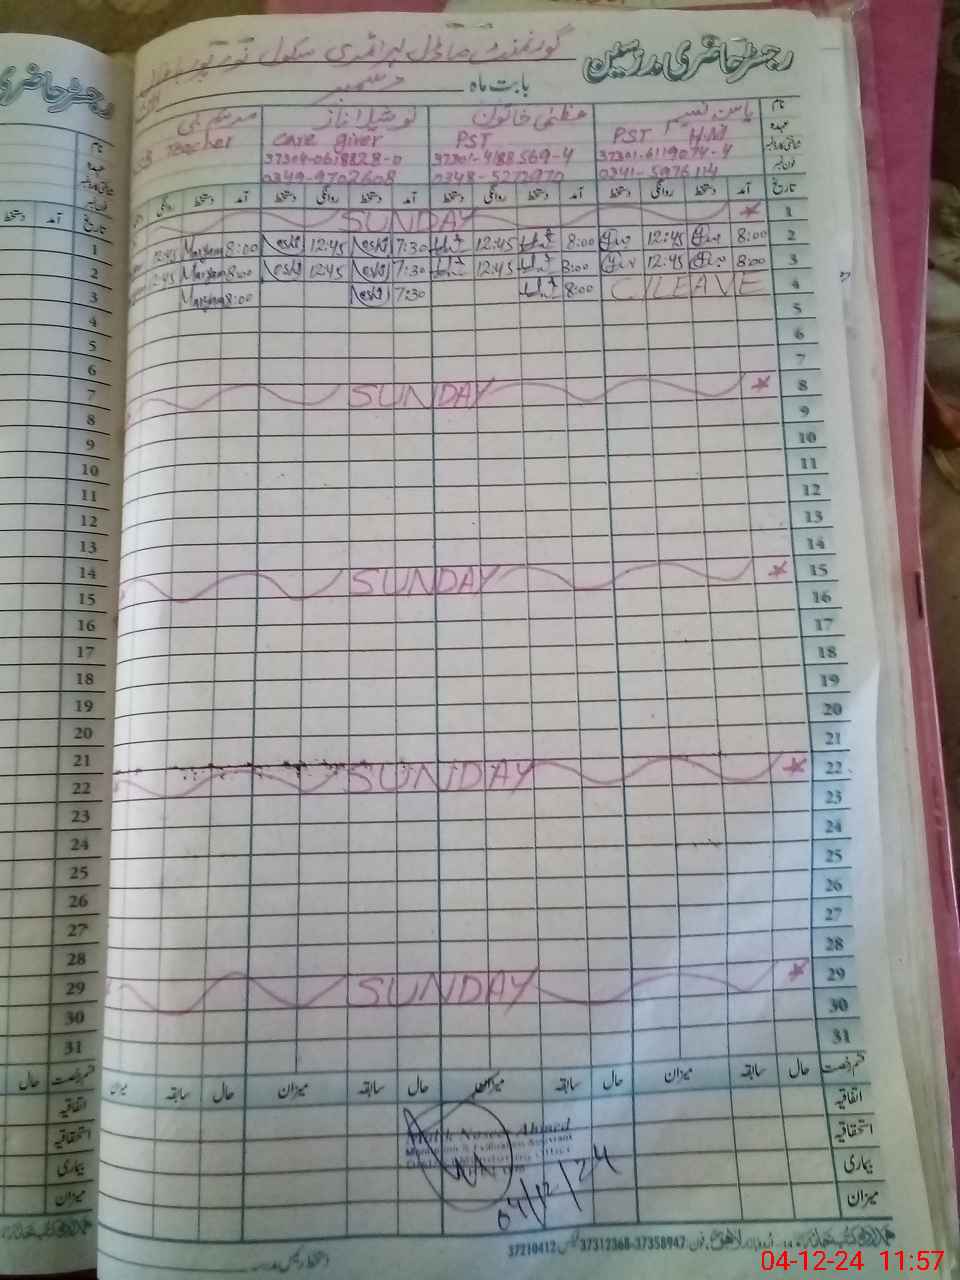 رجسٹر حاضری مدرسین
گورنمنٹ ماڈل پرائمری سکول
بابت ماہ دسمبر
نام یاسمین نسیم عظمیٰ خاتون نوشیلا ناز
عہدہ PST H.M PST Care giver Teacher
37301-6119074-4 37301-4188569-4 37304-0618828-0
0341-5976114 0348-5272970 0349-9702608
تاریخ آمد دستخط روانگی دستخط آمد دستخط روانگی دستخط آمد دستخط روانگی دستخط آمد دستخط روانگی
1 SUNDAY
2 8:00 12:45 8:00 12:45 7:30 Noshi 12:45 Noshi 8:00 Maryam 12:45
3 8:00 12:45 8:00 12:45 7:30 Noshi 12:45 Noshi 8:00 Maryam 12:45
4 C/LEAVE 8:00 7:30 Noshi 8:00 Maryam
5
6
7
8 SUNDAY
9
10
11
12
13
14
15 SUNDAY
16
17
18
19
20
21
22 SUNDAY
23
24
25
26
27
28
29 SUNDAY
30
31
قسم رخصت حال سابقہ میزان حال سابقہ میزان حال سابقہ میزان حال سابقہ میزان
اتفاقیہ
استحقاقیہ
بیماری
میزان
Malik Naseer Ahmed
Monitoring & Evaluation Assistant
04/12/24
37210412 37312368-37358947
رجسٹر حاضری
نام
عہدہ
تاریخ آمد دستخط
1
2
3
4
5
6
7
8
9
10
11
12
13
14
15
16
17
18
19
20
21
22
23
24
25
26
27
28
29
30
31
قسم رخصت حال
اتفاقیہ
استحقاقیہ
بیماری
میزان
04-12-24 11:57